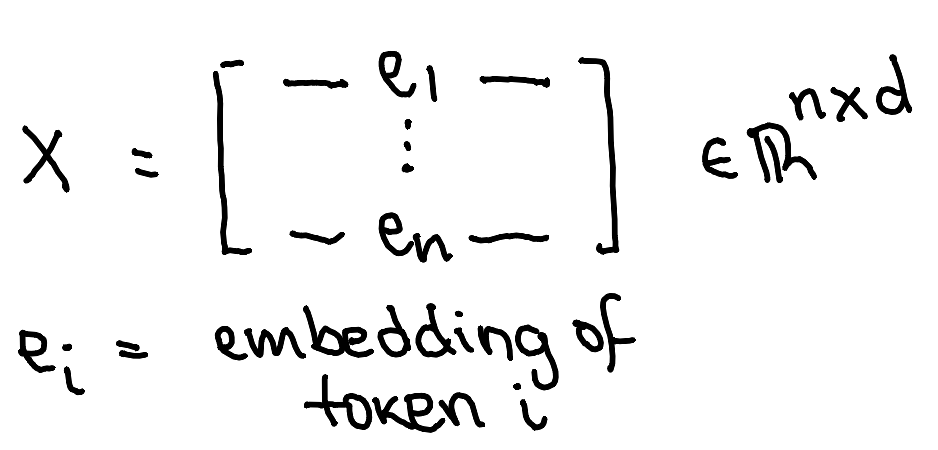 X = [ — e₁ — ⋮ — eₙ — ] ∈ ℝⁿˣᵈ
eᵢ = embedding of
token i